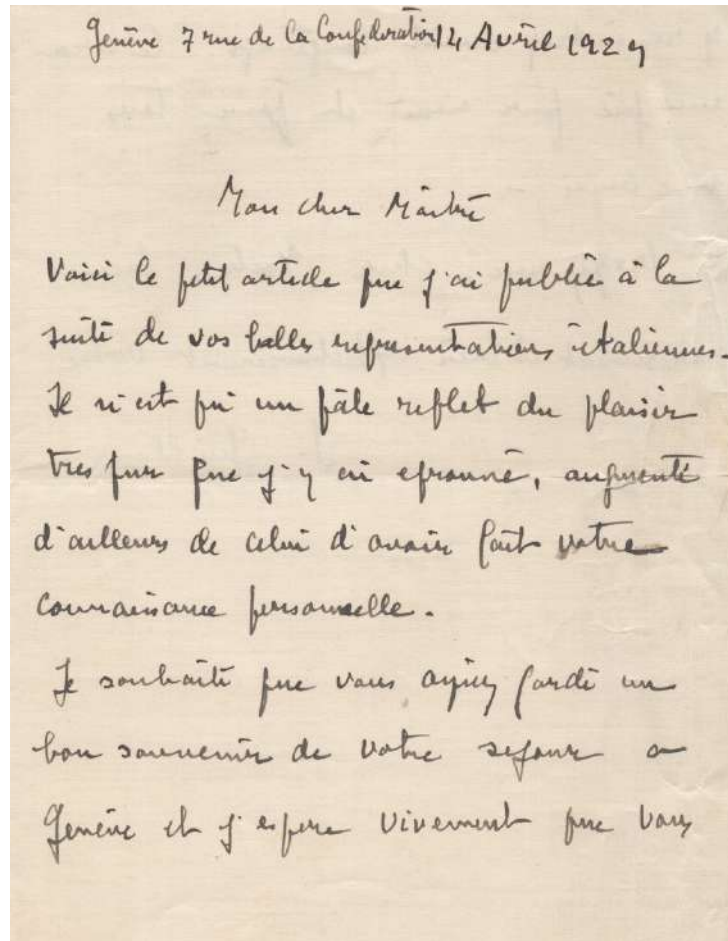 Genève 7 rue de la Confédération 14 Avril 1929
Mon cher Maître
Voici le petit article que j'ai publié à la
suite de vos belles representations italiennes.
Il n'est qu'un pâle reflet du plaisir
très pur que j'y ai eprouvé, augmenté
d'ailleurs de celui d'avoir fait votre
connaissance personnelle.
Je souhaite que vous ayiez gardé un
bon souvenir de votre sejour a
Genève et j'espere vivement que vous